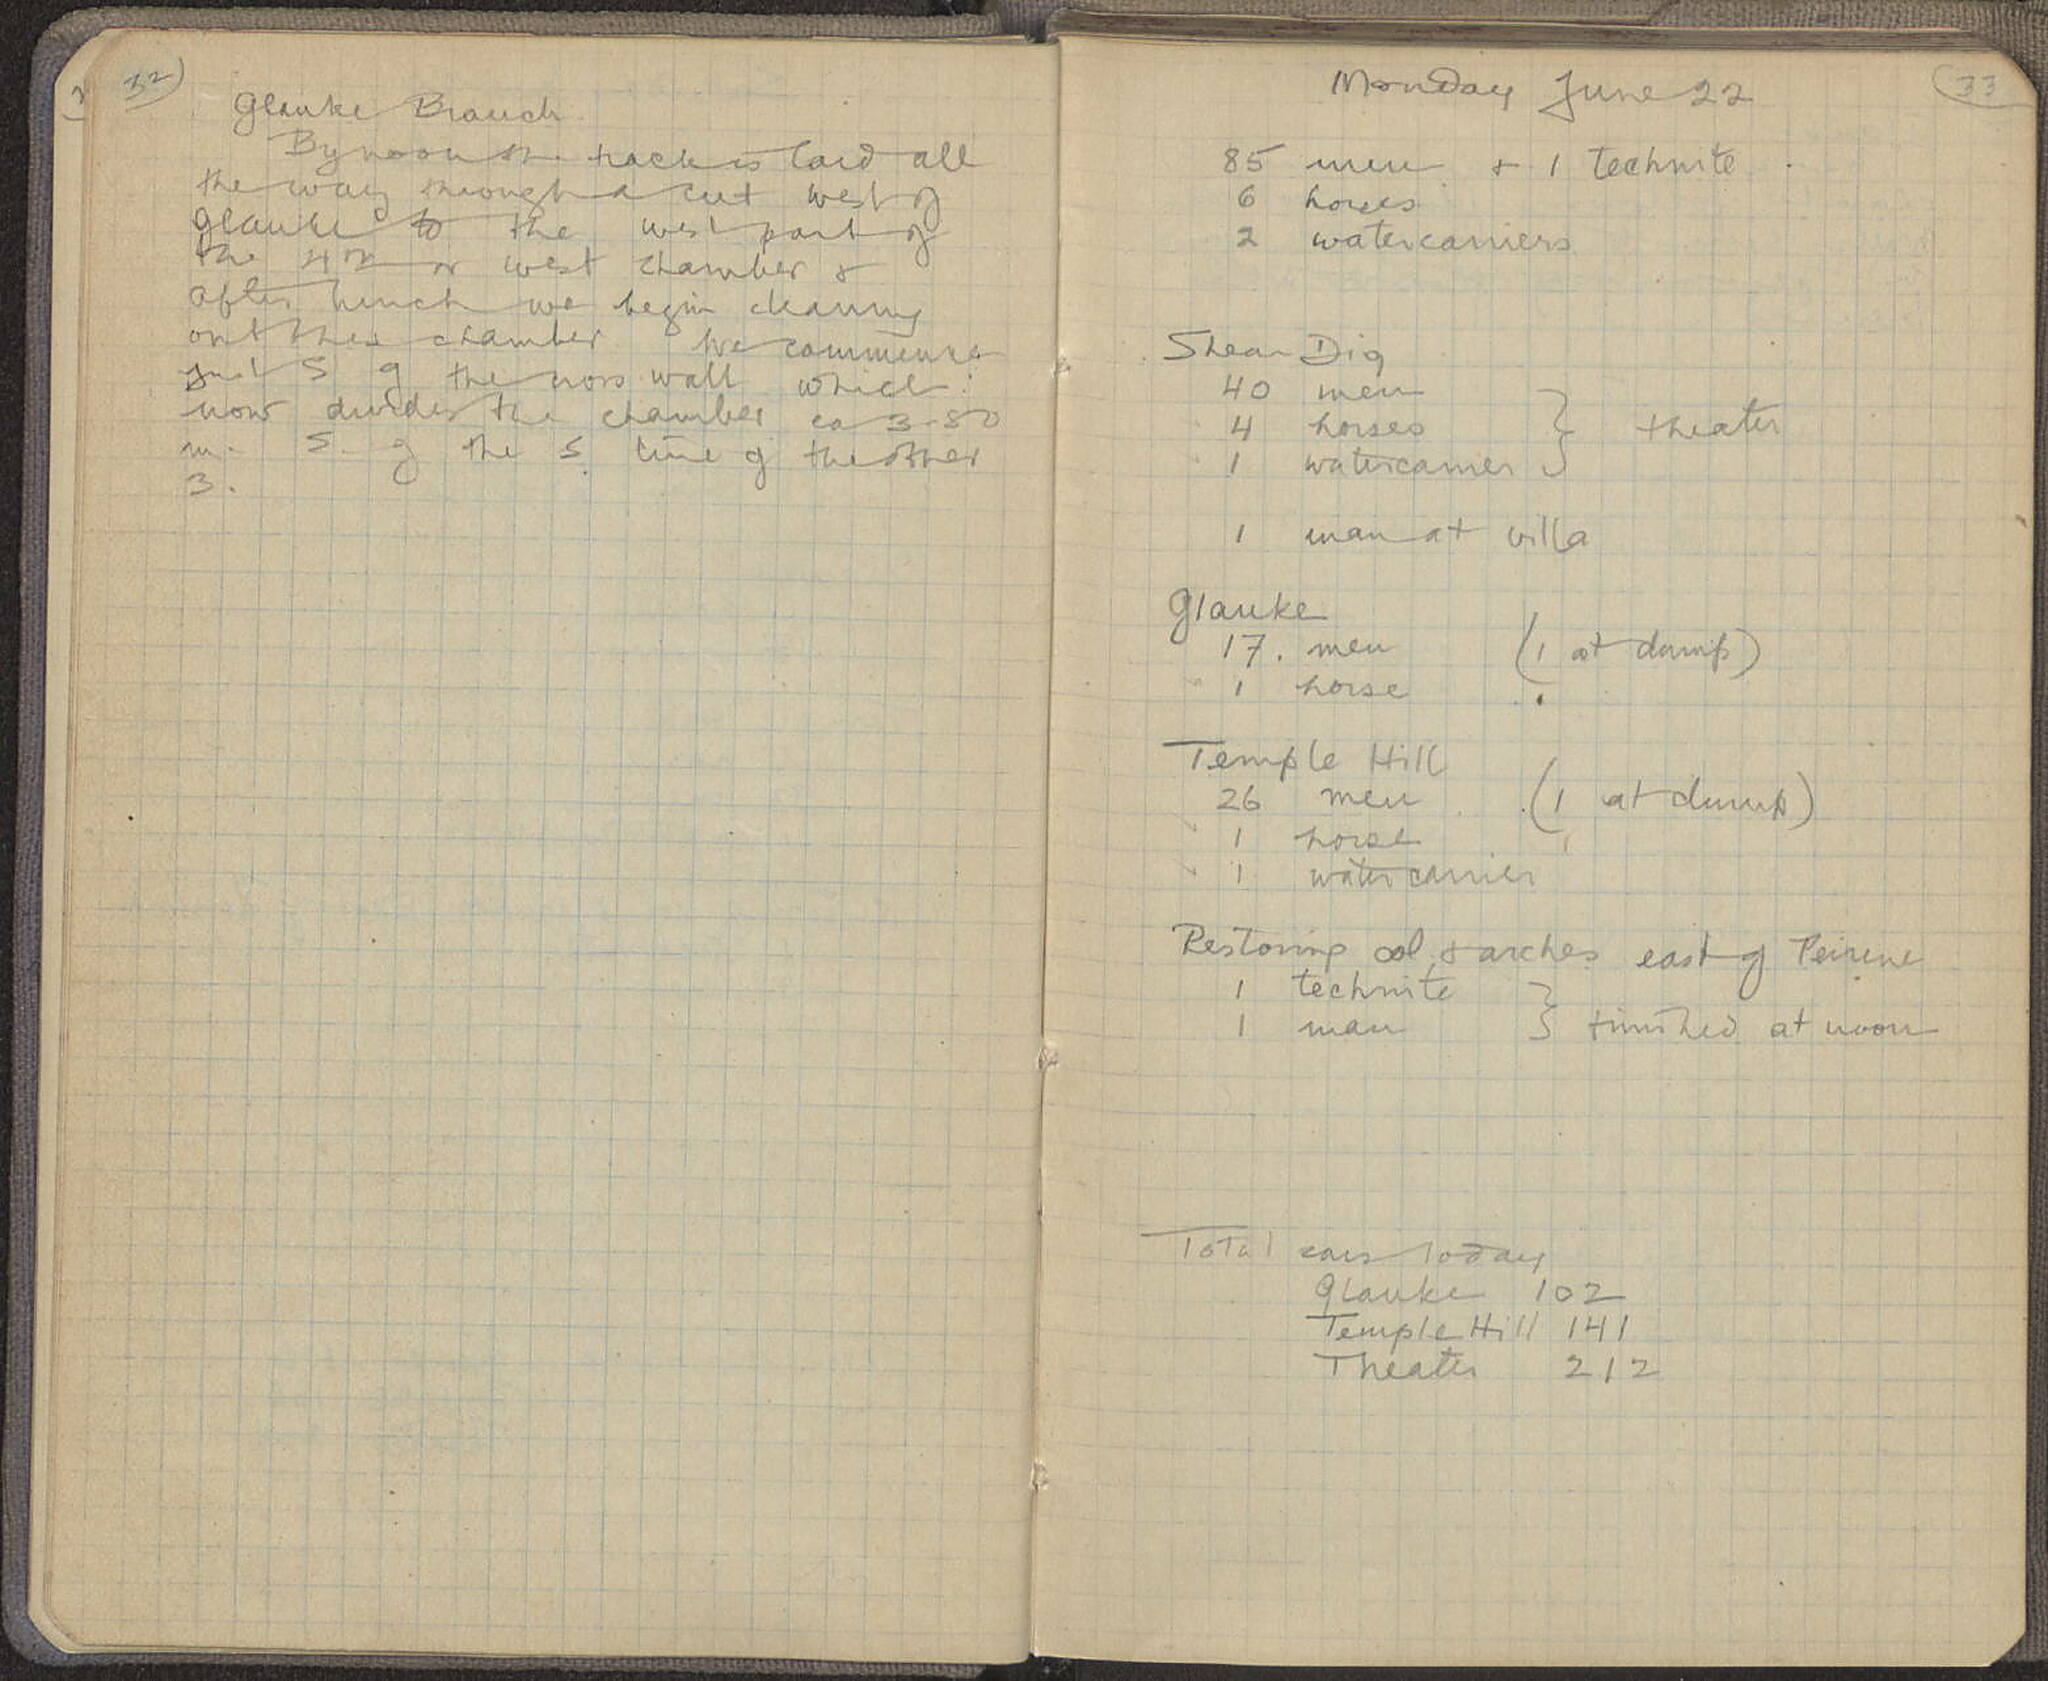 32)
Glauke Branch
By noon the track is laid all
the way through a cut west of
Glauke to the west part of
the 4th or west chamber &
after lunch we begin cleaning
out this chamber We commence
just S of the cross wall which
now divides the chamber ca 3.80
m. S. of the S. line of the other
3.
33
Monday June 22
85 men & 1 technite
6 horses
2 watercarriers
Shear Dig
40 men
4 horses } theater
1 watercarrier
1 man at villa
Glauke
17. men (1 at dump)
1 horse
Temple Hill
26 men (1 at dump)
1 horse
1 watercarrier
Restoring col. & arches east of Peirene
1 technite
1 man } finished at noon
Total cars today
Glauke 102
Temple Hill 141
Theater 212